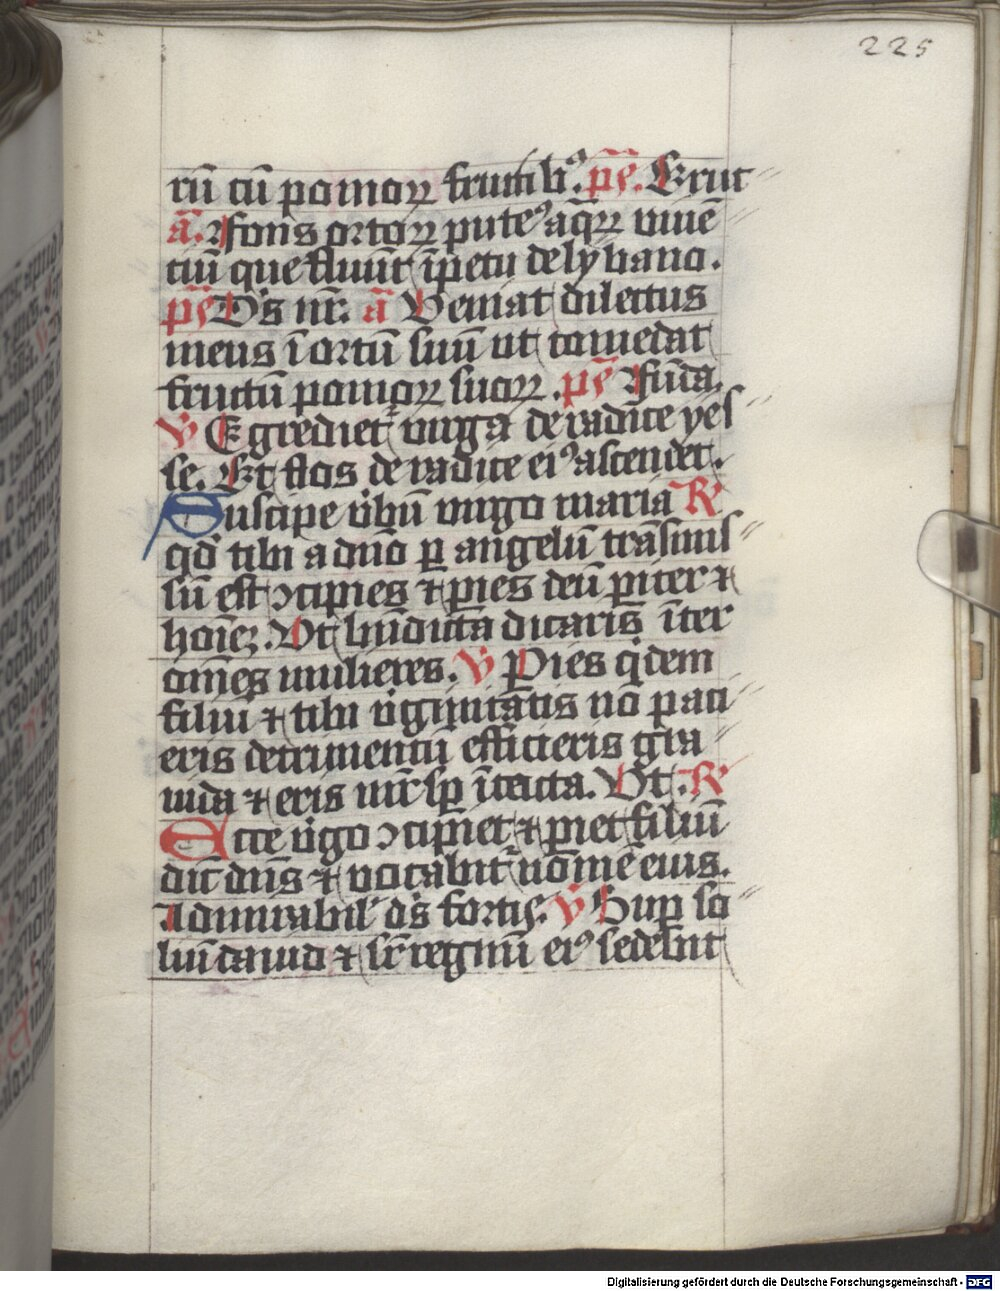 225
rū cū pomoꝝ fructibꝰ. pẜ. Eruc
ā. Fons ortoꝝ puteꝰ aq̄ꝝ viuē
tiū que fluūt īpetu de lybano.
pẜ Ds nr̄. ā Veniat dilectus
meus ī ortū suū ut comedat
fructū pomoꝝ suoꝝ. pẜ Fūda.
V Egrediet᷑ uirga de radice yes
se. Et flos de radice eiꝰ ascendet.
Suscipe v̄bū uirgo maria R
qd̄ tibi a dn̄o ꝑ angelū trāsmis
sū est ꝯcipies ⁊ ꝑies deū piter ⁊
hoīeꝫ. Vt bn̄dicta dicaris īter
om̄es mulieres. V Paries q̇dem
filiū ⁊ tibi v̇ginitatis nō paci
eris detrimentū efficieris gra
uida ⁊ eris mr̄ sꝑ ītacta. Vt. R
Ecce v̇go ꝯcipiet ⁊ ꝑiet filiū
dic̄ dn̄s ⁊ vocabit᷑ nomē eius.
Admirabil' ds fortis. V Suꝑ so
liū dauid ⁊ sr̄ regnū eiꝰ sedebit
Digitalisierung gefördert durch die Deutsche Forschungsgemeinschaft - DFG